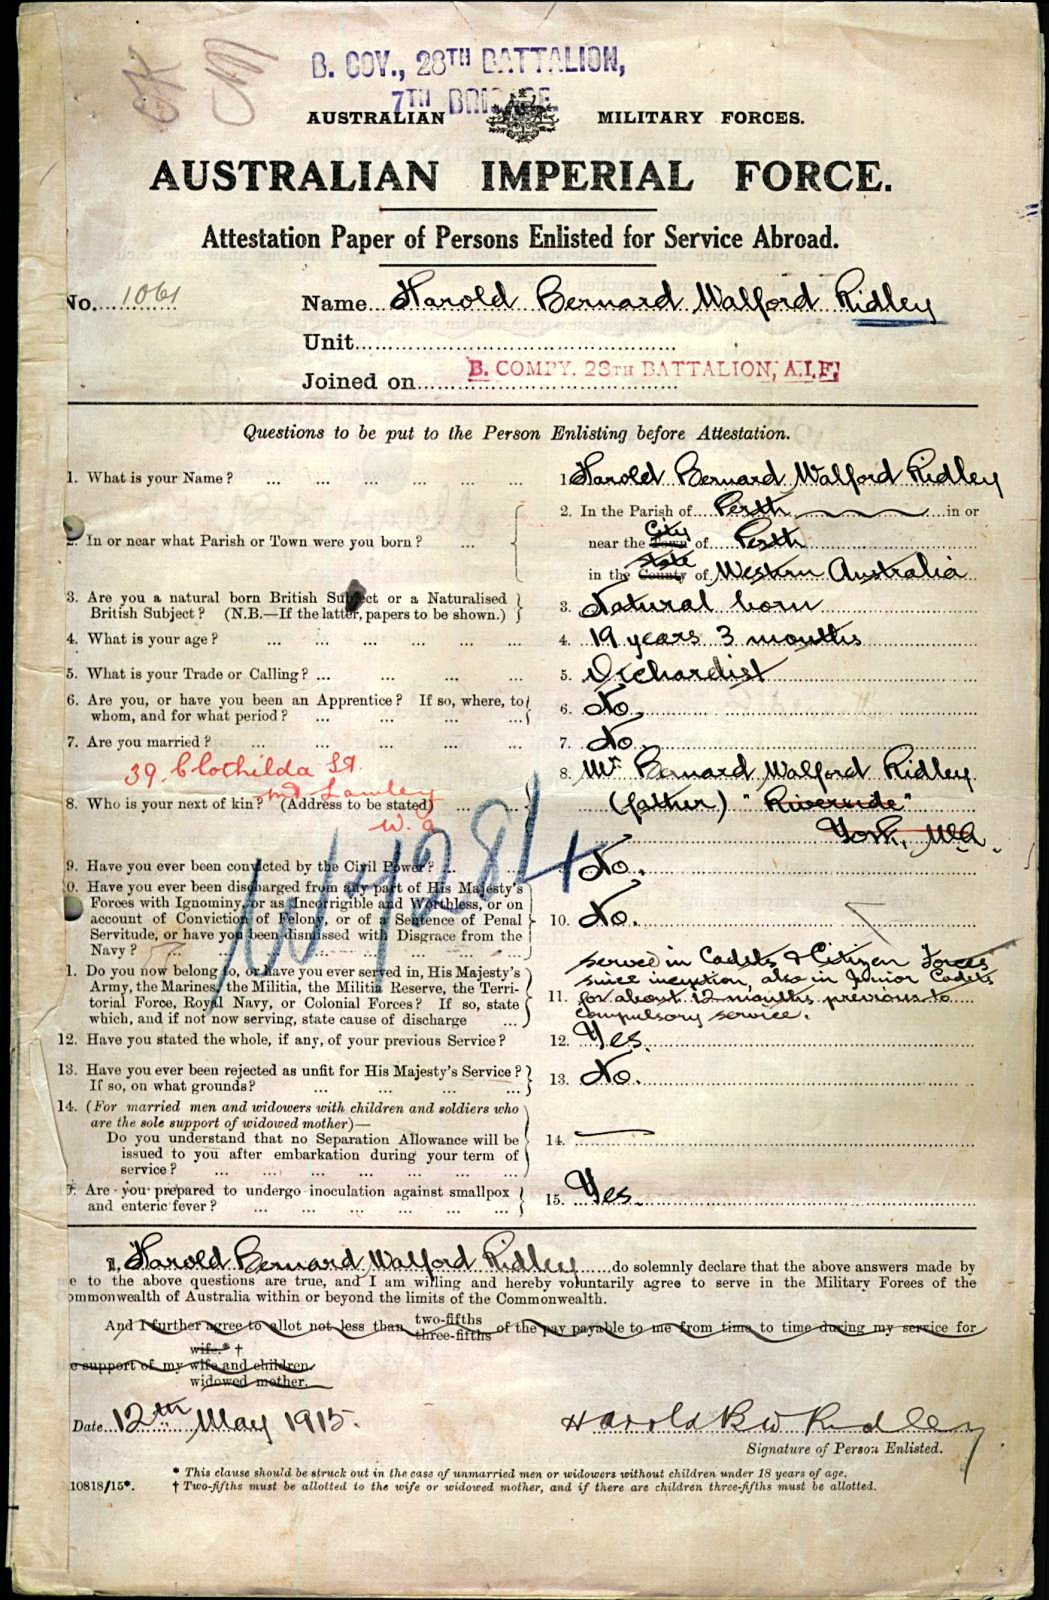 B. COY., 28TH BATTALION,
7TH BRIGADE.
AUSTRALIAN MILITARY FORCES.
AUSTRALIAN IMPERIAL FORCE.
Attestation Paper of Persons Enlisted for Service Abroad.
No. 1061 Name Harold Bernard Walford Ridley
Unit
Joined on B. COMPY. 28TH BATTALION, A.I.F.
Questions to be put to the Person Enlisting before Attestation.
1. What is your Name? ... 1. Harold Bernard Walford Ridley
2. In the Parish of Perth in or
2. In or near what Parish or Town were you born? ... near the Town City of Perth
in the County State of Western Australia
3. Are you a natural born British Subject or a Naturalised
British Subject? (N.B.—If the latter, papers to be shown.) 3. Natural born
4. What is your age? ... 4. 19 years 3 months
5. What is your Trade or Calling? ... 5. Orchardist
6. Are you, or have you been an Apprentice? If so, where, to
whom, and for what period? ... 6. No.
7. Are you married? ... 7. No.
39 Clothilda St.
Mt Lawley
W. A
8. Who is your next of kin? (Address to be stated) ... 8. Mr Bernard Walford Ridley
(father) "Riverside"
York, WA.
W4284
9. Have you ever been convicted by the Civil Power? ... No.
0. Have you ever been discharged from any part of His Majesty's
Forces with Ignominy, or as Incorrigible and Worthless, or on
account of Conviction of Felony, or of a Sentence of Penal
Servitude, or have you been dismissed with Disgrace from the
Navy? ... 10. No.
1. Do you now belong to, or have you ever served in, His Majesty's
Army, the Marines, the Militia, the Militia Reserve, the Terri-
torial Force, Royal Navy, or Colonial Forces? If so, state
which, and if not now serving, state cause of discharge ...
served in Cadets & Citizen Forces
since inception, also in Junior Cadets
11. for about 12 months previous to
compulsory service.
12. Have you stated the whole, if any, of your previous Service? 12. Yes.
13. Have you ever been rejected as unfit for His Majesty's Service?
If so, on what grounds? ... 13. No.
14. (For married men and widowers with children and soldiers who
are the sole support of widowed mother)—
Do you understand that no Separation Allowance will be
issued to you after embarkation during your term of
service? ... 14.
5. Are you prepared to undergo inoculation against smallpox
and enteric fever? ... 15. Yes.
I, Harold Bernard Walford Ridley do solemnly declare that the above answers made by
e to the above questions are true, and I am willing and hereby voluntarily agree to serve in the Military Forces of the
ommonwealth of Australia within or beyond the limits of the Commonwealth.
And I further agree to allot not less than two-fifths three-fifths of the pay payable to me from time to time during my service for
wife.* †
e support of my wife and children
widowed mother.
Date 12th May 1915. Harold B W Ridley
Signature of Person Enlisted.
* This clause should be struck out in the case of unmarried men or widowers without children under 18 years of age.
10818/15*. † Two-fifths must be allotted to the wife or widowed mother, and if there are children three-fifths must be allotted.